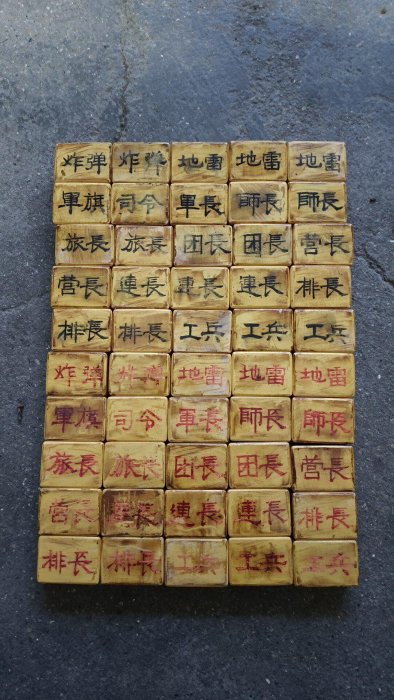 炸弹 炸弹 地雷 地雷 地雷
軍旗 司令 軍長 師長 師長
旅長 旅長 团長 团長 营長
营長 連長 連長 連長 排長
排長 排長 工兵 工兵 工兵
炸弹 炸弹 地雷 地雷 地雷
軍旗 司令 軍長 師長 師長
旅長 旅長 团長 团長 营長
营長 連長 連長 連長 排長
排長 排長 工兵 工兵 工兵